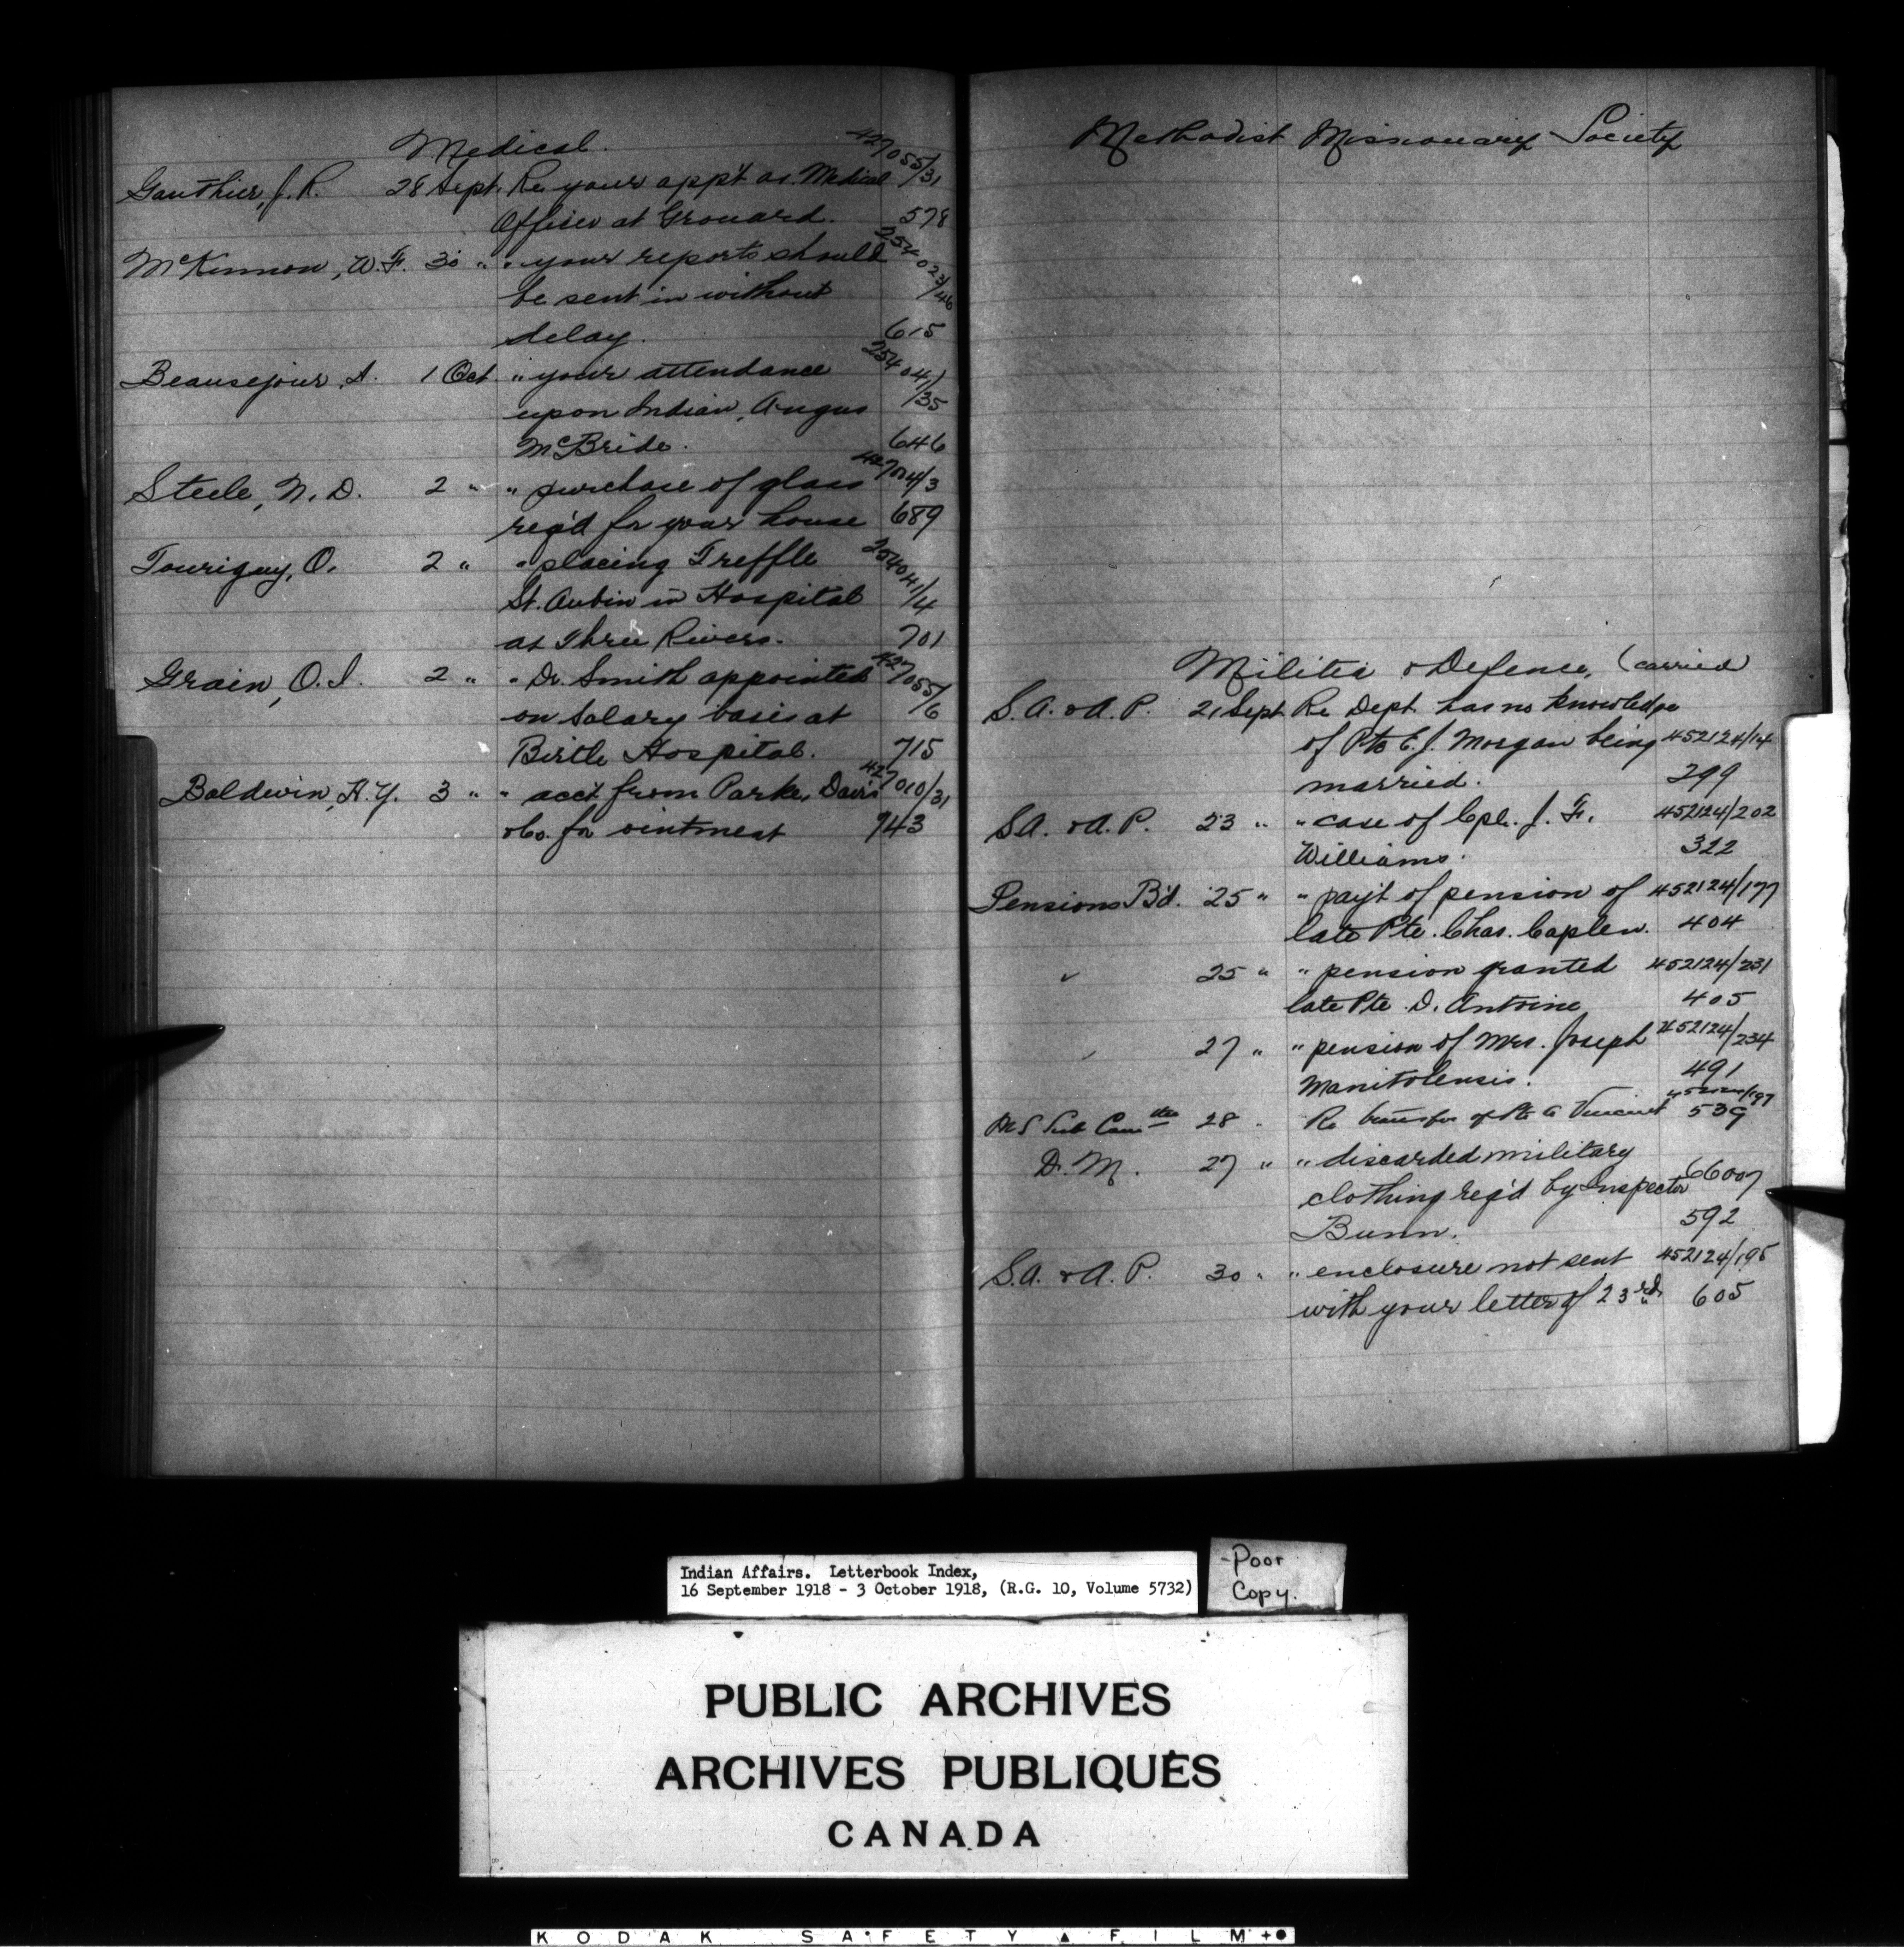 Medical.
427055/31
Gauthier, J. R. 28 Sept. Re your app't as Medical
Officer at Grouard. 578
McKinnon, W. F. 30 " " your reports should 254023/46
be sent in without
delay. 615
Beausejour, A. 1 Oct. " your attendance 254041/35
upon Indian, Angus
McBride. 646
Steele, N. D. 2 " " purchase of glass 427014/3
req'd for your house 689
Tourigny, O. 2 " " placing Treffle 254041/4
St. Aubin in Hospital
at Three Rivers. 701
Grain, O. I. 2 " " Dr. Smith appointed 427055/6
on salary basis at
Birtle Hospital. 715
Baldwin, H. Y. 3 " " acct from Parke, Davis 427010/31
& Co. for ointment 743
Methodist Missionary Society
Militia & Defence, (carried)
S. A. & A. P. 21 Sept Re Dept. has no knowledge
of Pte E. J. Morgan being 452124/14
married. 299
S.A. & A. P. 23 " " case of Cpl. J. F. 452124/202
Williams. 322
Pensions B'd. 25 " " pay't of pension of 452124/177
late Pte. Chas. Caplen. 404
" 25 " " pension granted 452124/231
late Pte. D. Antoine 405
" 27 " " pension of Mrs. Joseph 452124/234
Manitolensis. 491
Sub Comttee 28 " Re transfer of Pte Vincent 452124/197 539
D. M. 27 " " discarded military
clothing req'd by Inspector 66007
Bunn. 592
S.A. & A. P. 30 " " enclosure not sent 452124/195
with your letter of 23rd. 605
Indian Affairs. Letterbook Index,
16 September 1918 - 3 October 1918, (R.G. 10, Volume 5732)
-Poor
Copy.
PUBLIC ARCHIVES
ARCHIVES PUBLIQUES
CANADA
KODAK SAFETY FILM